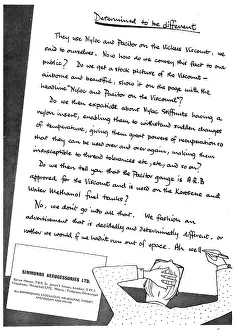 Determined to be different
They use Nyloc and Pacitor on the Vickers Viscount, we
said to ourselves. Now how do we convey this fact to our
public? Do we get a stock picture of the Viscount —
airborne and beautiful; show it on the page with the
headline "Nyloc and Pacitor on the Viscount"?
Do we then expatiate about Nyloc Stiffnuts having a
nylon insert, enabling them to withstand sudden changes
of temperature, giving them great powers of recuperation so
that they can be used over and over again, making them
insusceptible to thread tolerances etc, etc, and so on?
Do we then tell you that the Pacitor gauge is A.R.B
approved for the Viscount and is used on the Kerosene and
Water Methanol fuel tanks?
No, we don't go into all that. We fashion an
advertisement that is decidedly and determinedly different, or
rather we would if we hadn't run out of space. Ah well
SIMMONDS AEROCESSORIES LTD.